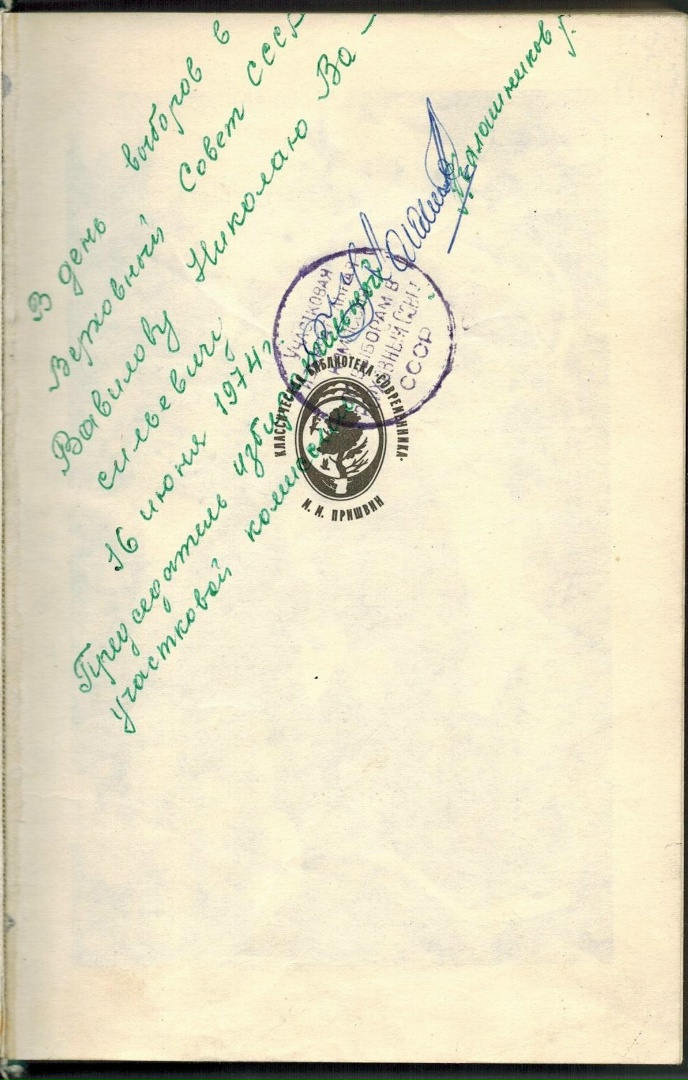 В день выборов в
Верховный Совет СССР
Вавилову Николаю Ва-
сильевичу
16 июня 1974г.
Председатель избирательной
участковой комиссии
Калашников
УЧАСТКОВАЯ
ВЫБОРАМ В
СССР
КЛАССИЧЕСКАЯ БИБЛИОТЕКА «СОВРЕМЕННИКА»
М. М. ПРИШВИН